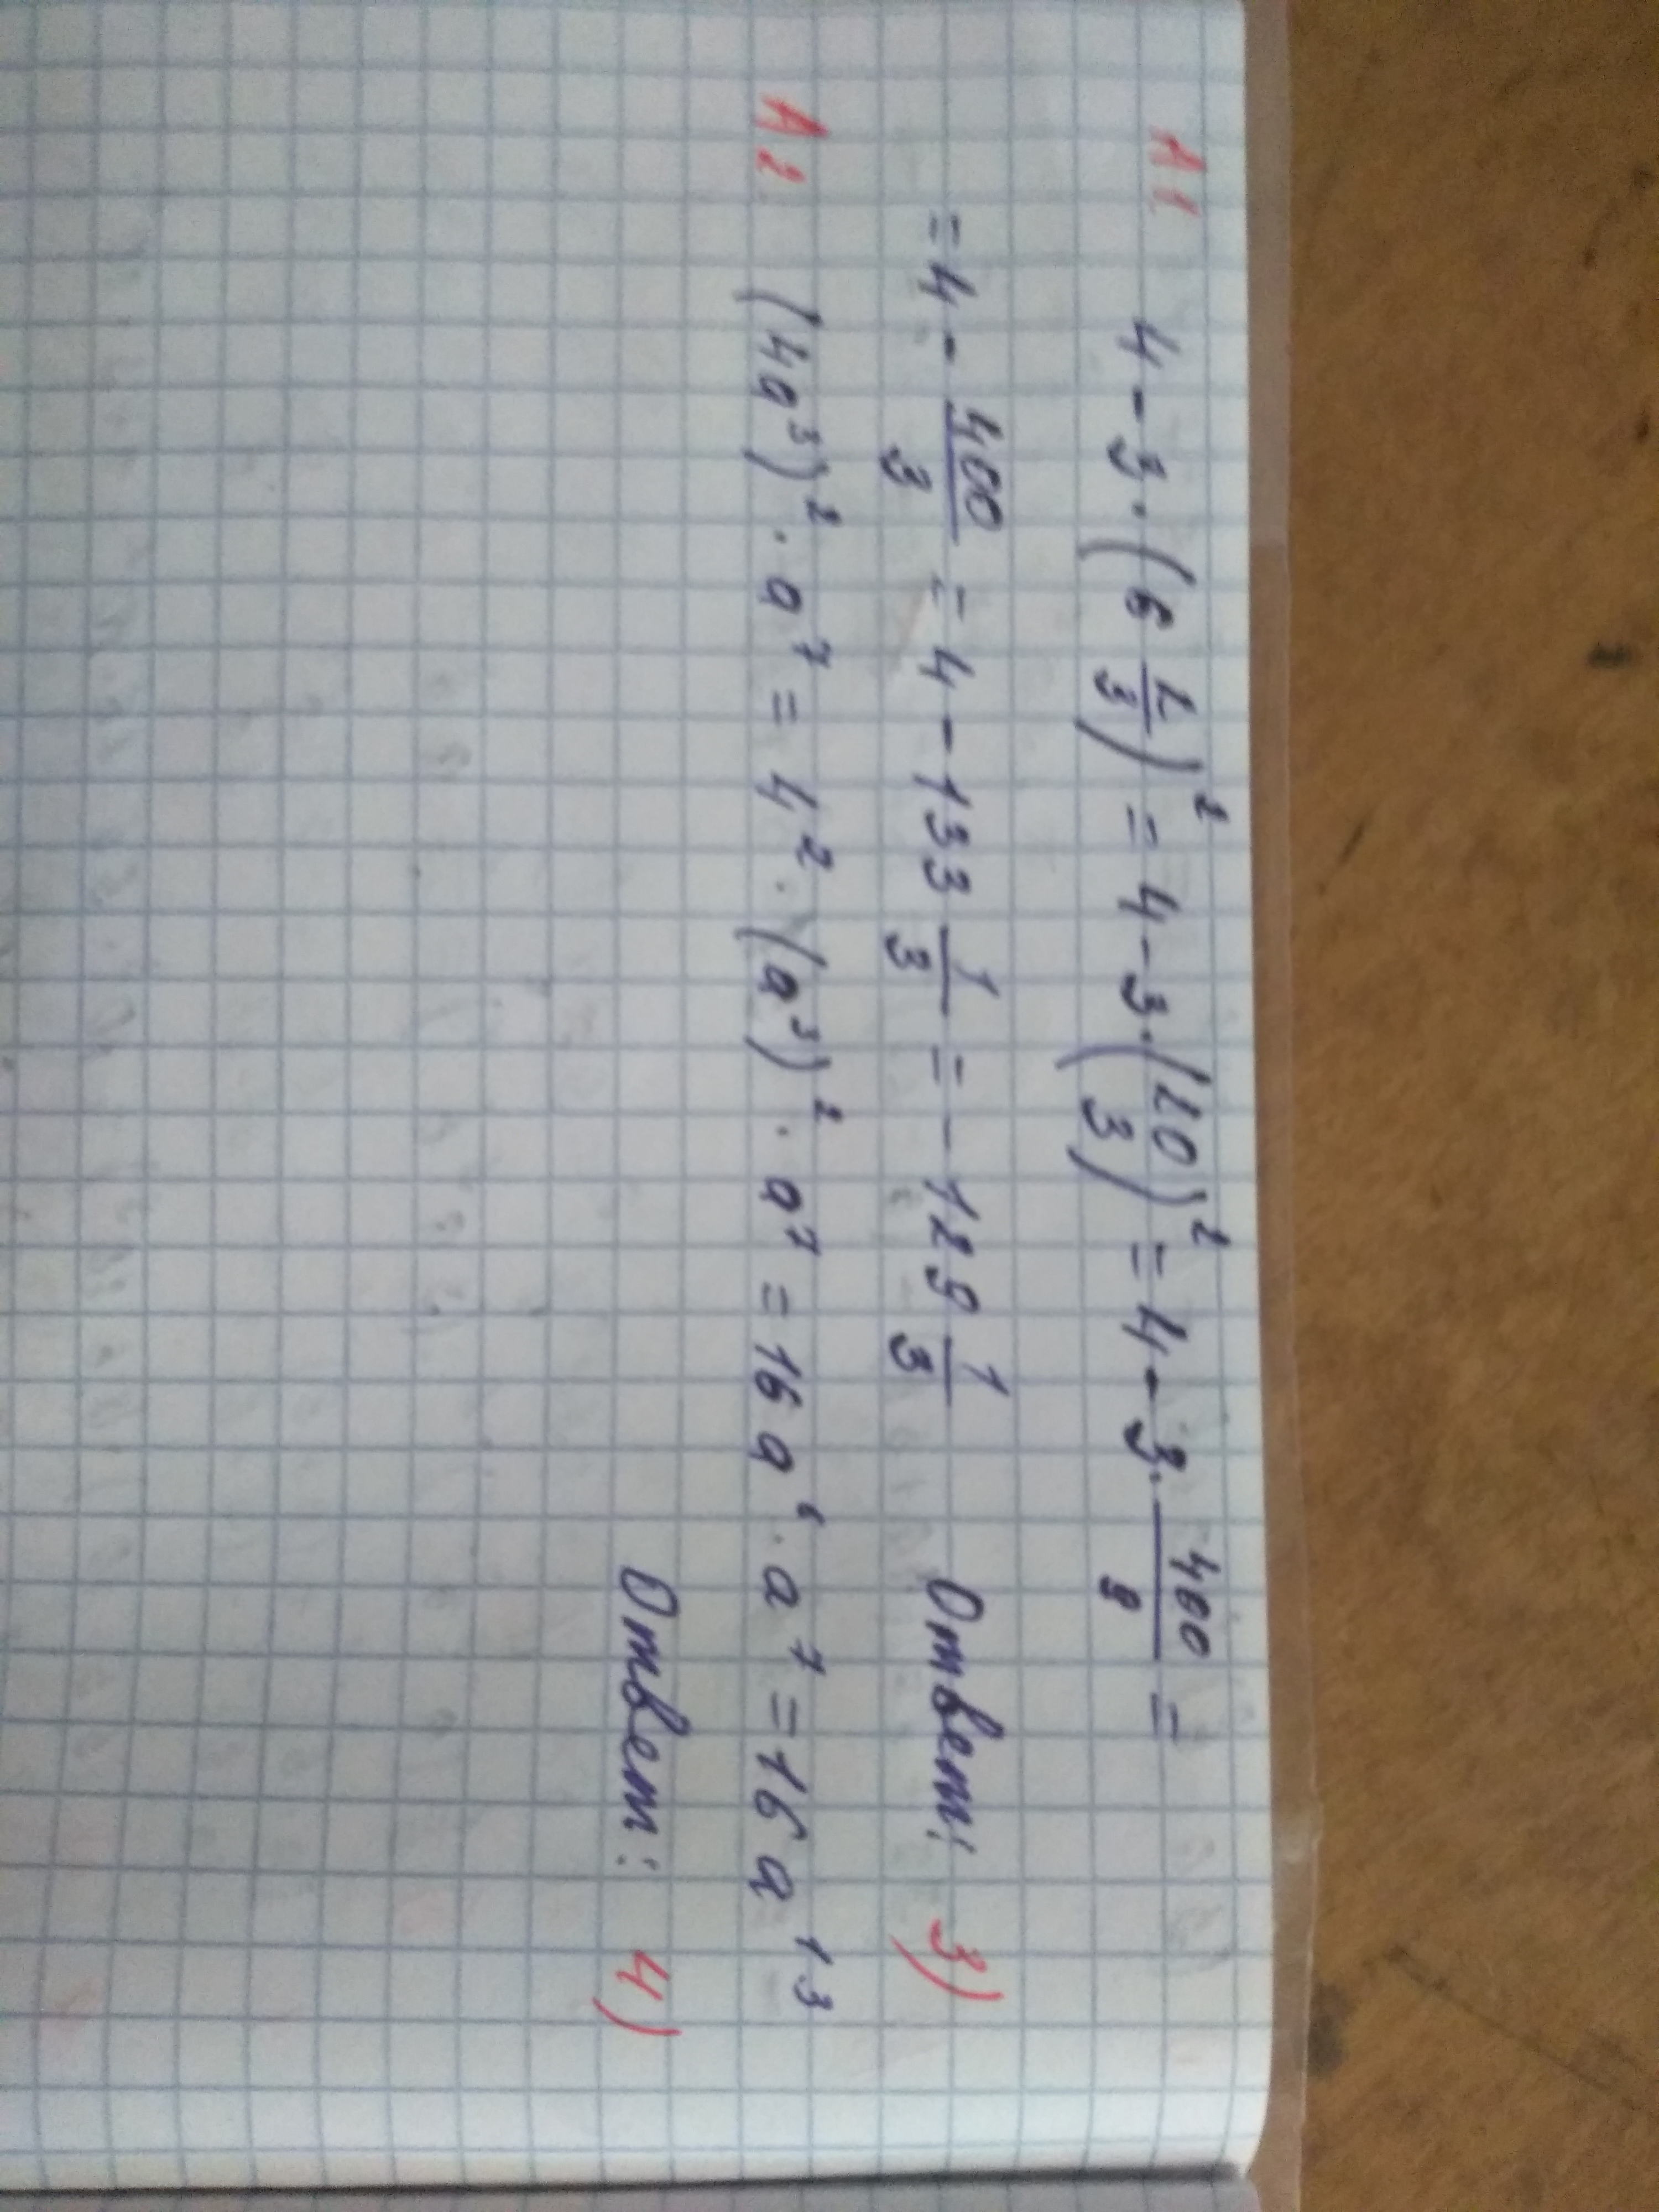 А1. 4 - 3 · (6 2/3)² = 4 - 3 · (20/3)² = 4 - 3 · 400/9 =
= 4 - 400/3 = 4 - 133 1/3 = - 129 1/3 Ответ: 3)
А2. (4a³)² · a⁷ = 4² · (a³)² · a⁷ = 16a⁶ · a⁷ = 16a¹³
Ответ: 4)